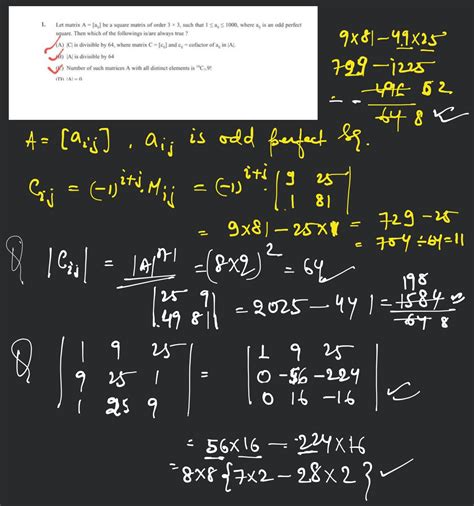 1. Let matrix A = [aᵢⱼ] be a square matrix of order 3 × 3, such that 1 ≤ aᵢⱼ ≤ 1000, where aᵢⱼ is an odd perfect
square. Then which of the followings is/are always true ?
(A) |C| is divisible by 64, where matrix C = [cᵢⱼ] and cᵢⱼ = cofactor of aᵢⱼ in |A|.
|A| is divisible by 64
Number of such matrices A with all distinct elements is ¹⁶C₉ 9!
(D) |A| = 0
9x81 - 49x25
729 - 1225
64 8
A = [aᵢⱼ] , aᵢⱼ is odd perfect Sq.
Cᵢⱼ = (-1)ⁱ⁺ʲ Mᵢⱼ = (-1)ⁱ⁺ʲ | 9 25
1 81 |
= 9x81 - 25x1 = 729 - 25
= 704 ÷ 64 = 11
|Cᵢⱼ| = |A|ⁿ⁻¹ = (8x2)² = 64
198
| 25 9
49 81 | = 2025 - 441 = 1584
64 8
| 1 9 25
9 25 1
1 25 9 | = | 1 9 25
0 -56 -224
0 16 -16 |
= 56x16 - 224x16
= 8x8 {7x2 - 28x2}